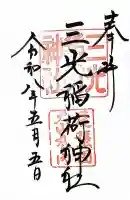 奉拝
三光稲荷神社
令和八年五月五日